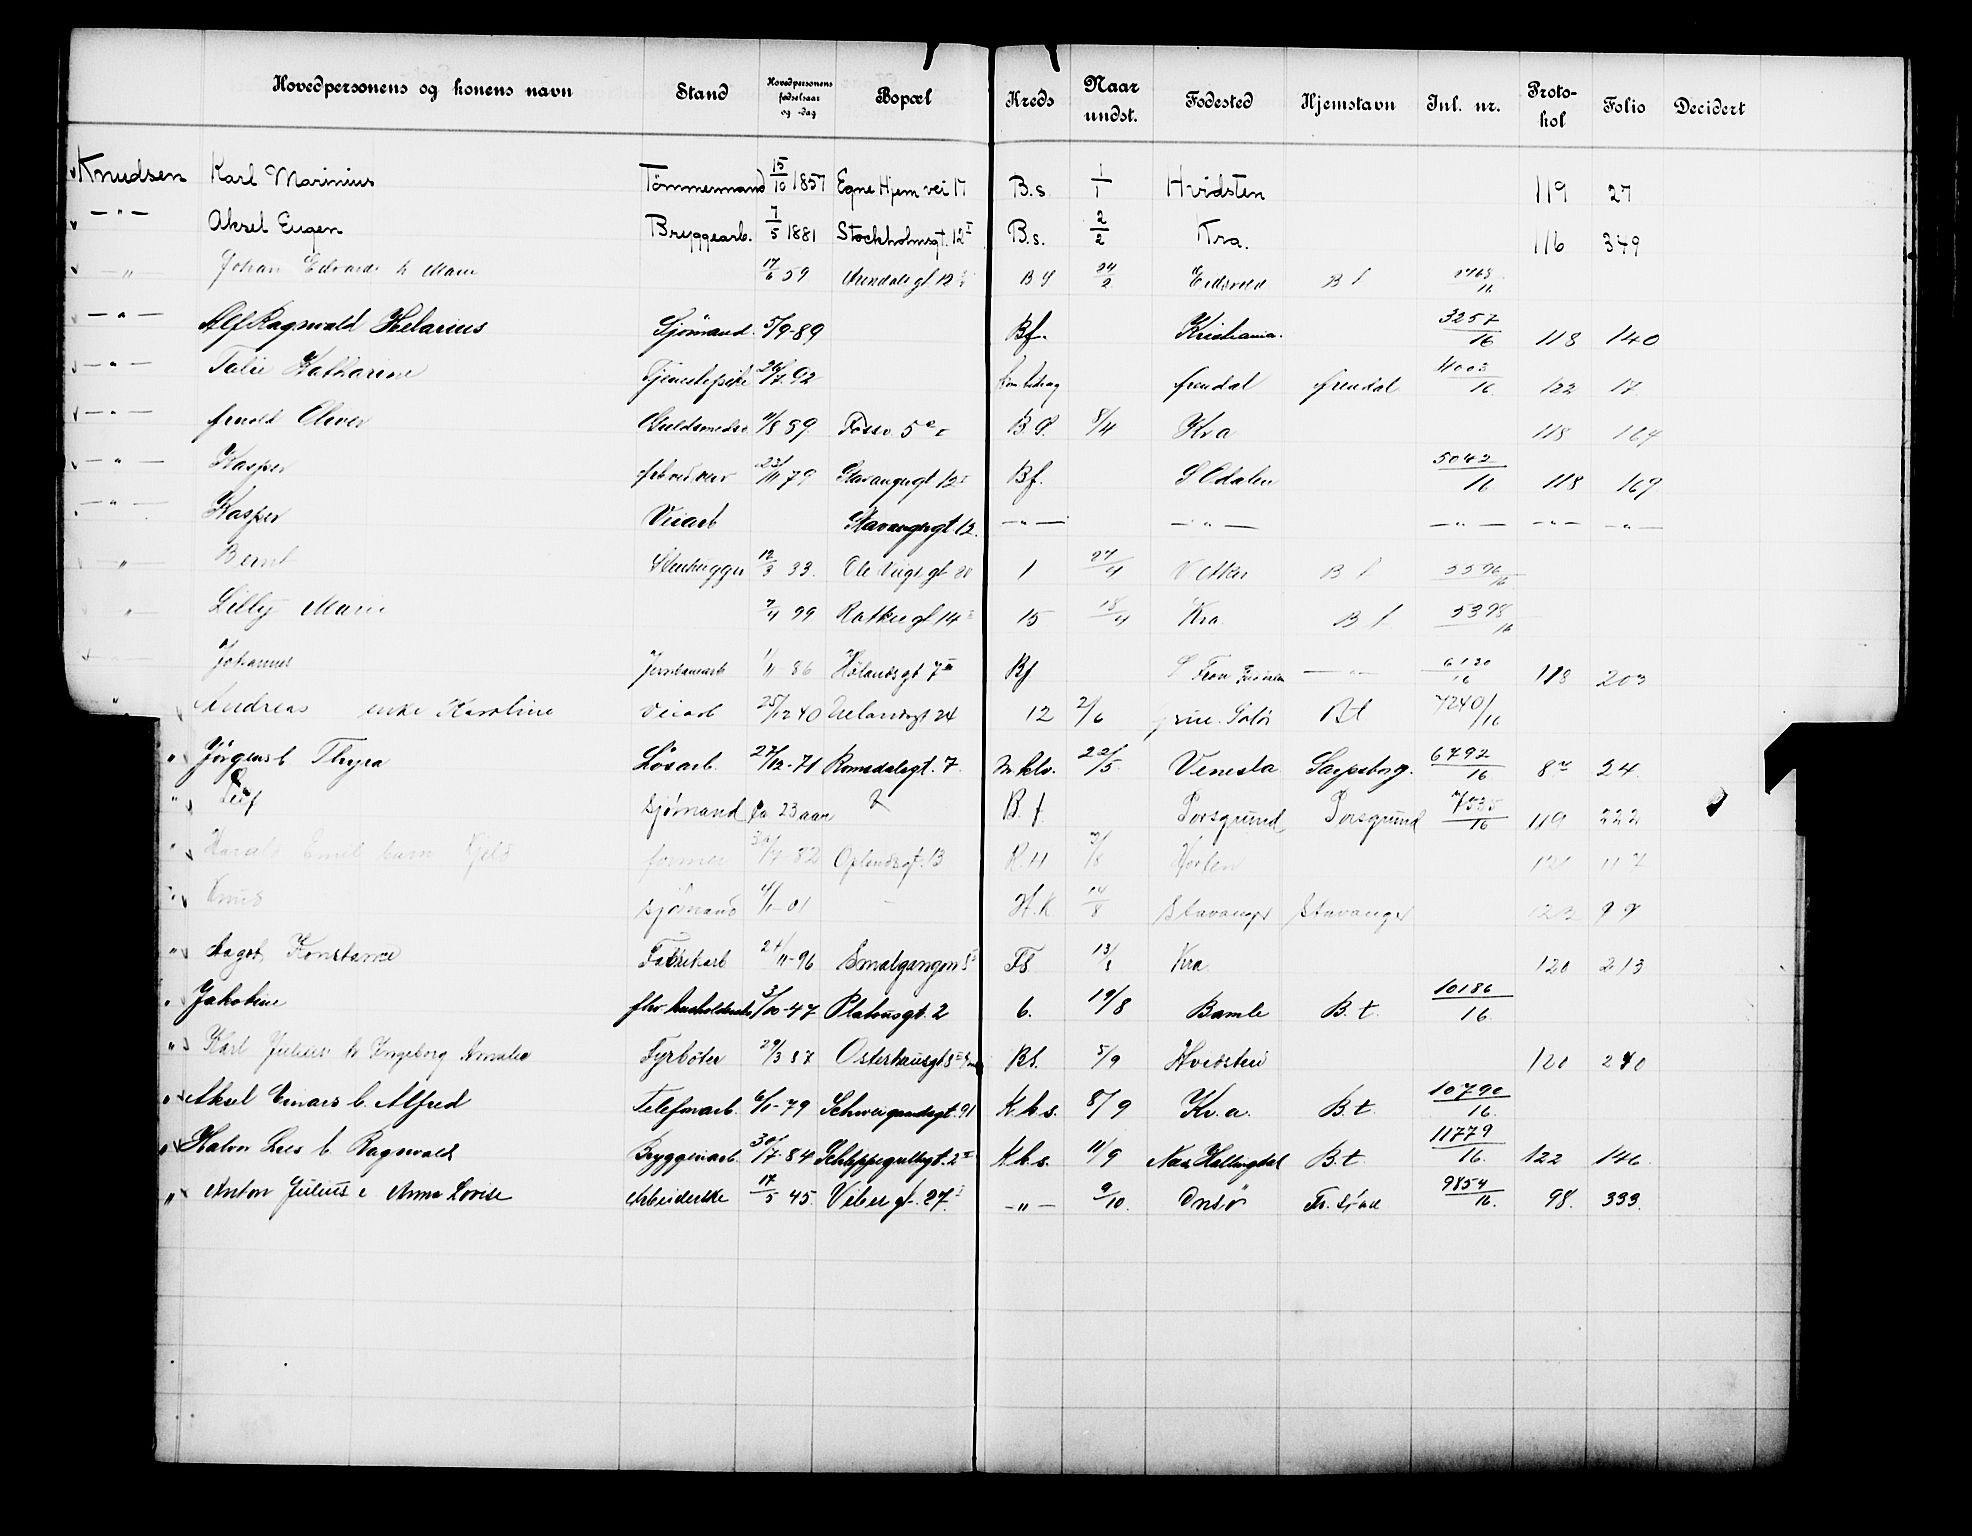 Hovedpersonens og konens navn Stand Hovedpersonens fødselsaar og -dag Bopæl Kreds Naar undst. Fødested Hjemstavn Inl. nr. Proto-kol Folio Decidert
Knudsen Karl Marinius Tømmermand 15/10 1857 Egne Hjem vei 17 B.s. 1/1 Hvidsten 119 27
—"— Aksel Eugen Bryggearb. 7/5 1881 Stockholmsgt. 12 I B.s. 2/2 Kra. 116 349
—"— Johan Edvards h Marie 17/6 59 Arendalsgt 12 B f 24/2 Eidsvold B t 16
—"— Alf Ragnvald Helarius Sjømand 5/9-89 Bf. Kristiania. 3257/16 118 140
—"— Talie Katharine Tjenestepike 7-92 Arendal Arendal 4003/16 122 17
—"— Arnold Oliver Guldsmedsv. 11/8 59 Fossv. 5 B.f. 8/4 Kra 118 164
—"— Kasper 23/11 79 Stavangergt 12 I Bf. S Odalen 5042/16 118 169
—"— Kasper Veiarb Stavangergt 12. —"— —"— —"— —"— —"—
" Bernt Stenhugger 12/3 33. Ole Vigs gt 20 1 27/4 V Aker B t 5596/16
" Lilly Marie 7/4 99 Ratkes gt 14 15 18/4 Kra B t 5398/16
Johannes Jernbanearb 1/11 86 Hølandsgt 7 III Bf S Fron —"— 6120/16 118 203
" Andreas enke Karoline Veiarb 25/12 40 12 2/6 Solør Bt 7240/16
" Jørgens b Thyra Løsarb. 27/12-71 Romsdalsgt. 7. 22/5 Venesla Sarpsborg. 6792/16 8 24
" Leif sjømand Ca 23 aar B. f. Porsgrund Porsgrund 7535/16 119 222
" Harald Emil barn Kjeld former 82 Oplandsgt. 13 K.H 3/8 Horten 121 117
" Knud sjømand 4/1-01 — H.K. 14/8 Stavanger Stavanger 123 99
" Dagot Konstanse Fabrikarb 24/11-96 Smalgangen 5 I Fs 13/8 Kra 120 213
" Jakobine 3/10-47 Platousgt. 2 6. 19/8 Bamle B.t. 10186/16
" Karl Julius h Ingeborg Amalie Fyrbøter 29/3 87 Osterhausgt 8 Bf. 5/9 Hvidsten 120 240
" Aksel Einars b. Alfred Telefonarb. 6/1-79 Schweigaardsgt. 91 K.b.s. 8/9 Kr.a. B.t. 10790/16
" Halvor Lies b. Ragnvald Bryggeriarb. 30/7-84 Schleppegrellsgt. 2 II K.b.s. 11/9 Næs Hallingdal B.t. 11779/16 122 146
" Anton Julius e Anna Lovise Arbeiderske 17/5 45 Vibes gt. 27. I —"— 9/10. Onsø 9854/16 98. 333.